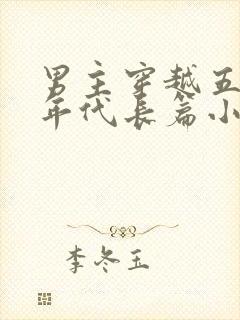 男主穿越五
年代长篇小
李冬玉